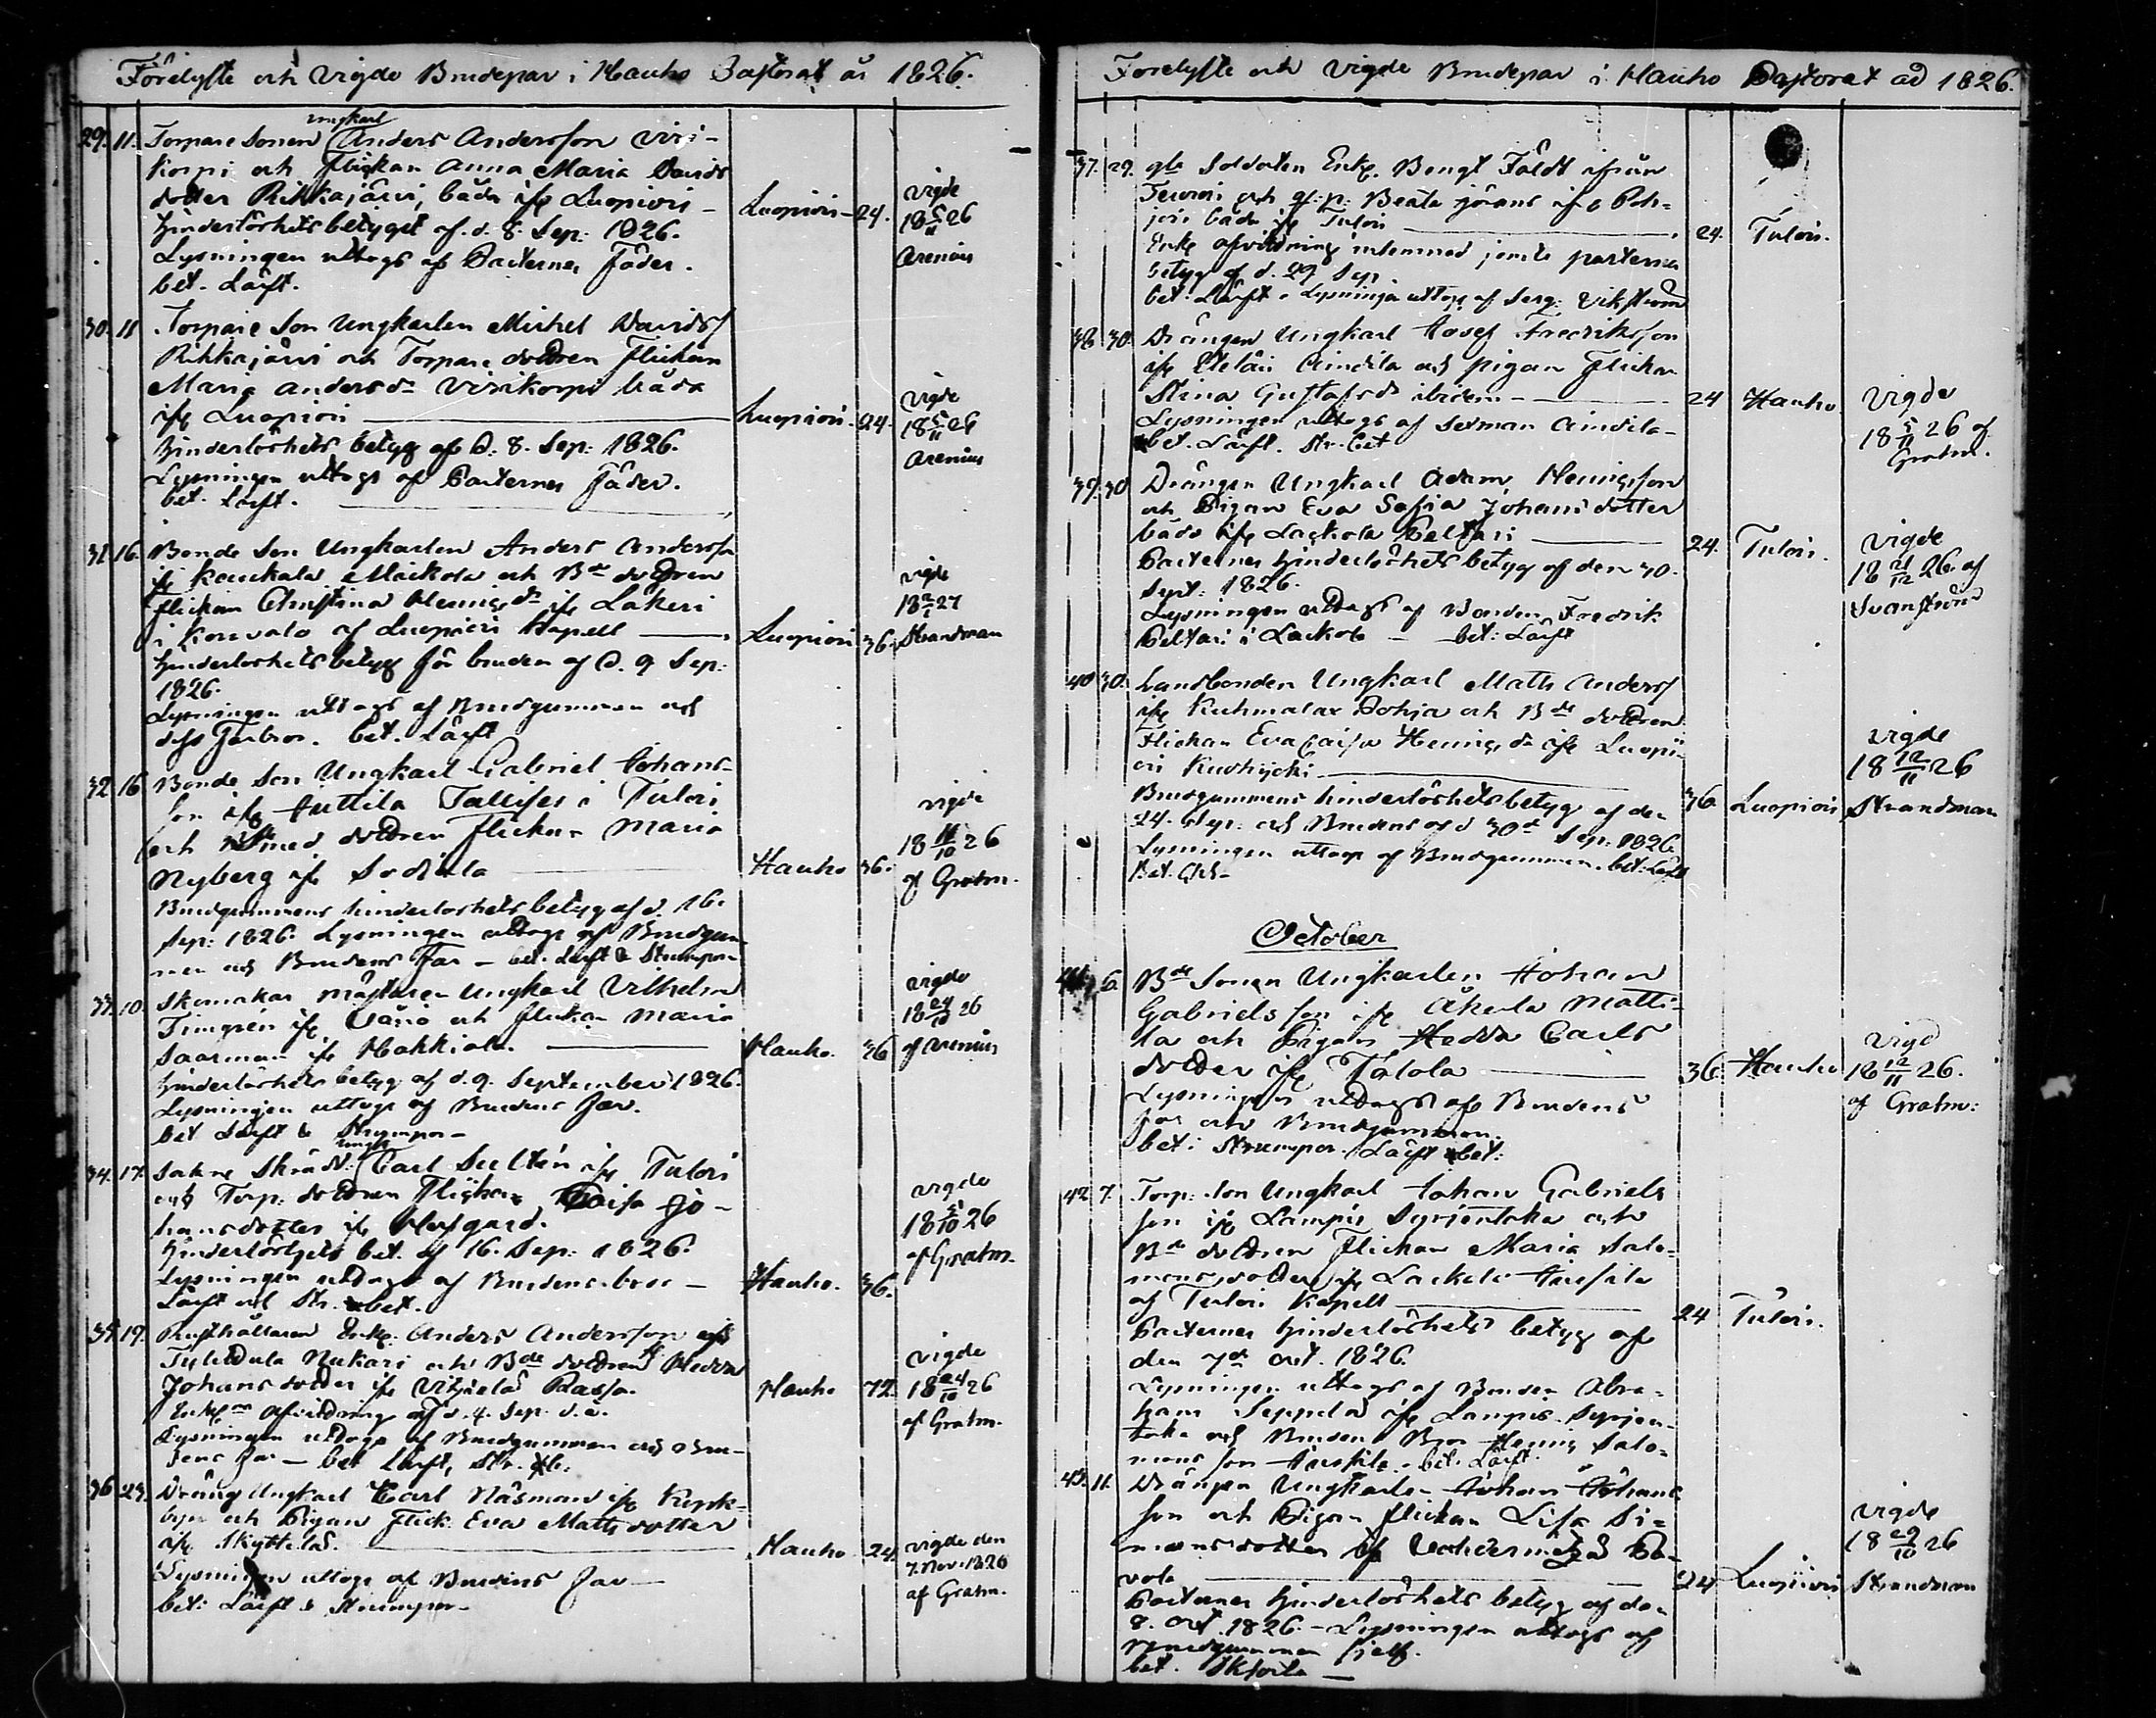 Förelyste och Vigde Brudepar i Hauho Pastorat år 1826.
29. 11. Torpare Sonen Ungkarl Anders Andersson Viri-
korpi och Flickan Anna Maria Davids
dotter Rihkajärvi, båda ifr Luopiois -
Hinderlöshets betyget af d. 8. Sep: 1826.
Lysningen uttogs af Parternes Fäder.
bet. Lärft.
Luopiois - 24.
vigde
18 5/11 26
Arenius
30. 11 Torpare Son Ungkarlen Michel Davids
Rihkajärvi och Torpare dottren Flickan
Maria Andersdr Virikorpi båda
ifr Luopiois
Hinderlöshets betyg af d. 8. Sep: 1826.
Lysningen uttogs af Parternes Fäder.
bet. Lärft.
Luopiois. 24.
vigde
18 5/11 26
Arenius
31. 16. Bonde Son Ungkarlen Anders Anderss
ifr Kaukala Maikola och Bde dottren
flickan Christina Hennigsdr ifr Lakeri
i Kouvala af Luopiois Kapell
Hinderlöshets betyg för bruden af d. 9 Sep:
1826.
Lysningen uttogs af Brudgummen och
dess Farbror. bet. Lärft
Luopiois 36.
vigde
27
Strandman
32. 16. Bonde Son Ungkarl Gabriel Johans-
son ifr Juttila Tallifer i Tulois
och Smed dottren flickan Maria
Nyberg ifr Sodiala
Brudgummens hinderloshets betyg af d. 16.
Sep: 1826. Lysningen uttogs af Brudgum-
men och Brudens Far - bet. Lärft & Strumpor
Hauho 36.
vigde
18 11/10 26
af Grahn.
33. 10. Skomakar mästaren Ungkarl Vilhelm
Timgrén ifr och flickan Maria
Saarman ifr Hakkiala.
Hinderlöshets betyg af d. 9. September 1826.
Lysningen uttogs af Brudens Far.
bet Lärft & Strumpor -
Hauho. 36
vigde
18 24/10 26
af Arenius
34. 17. Sokne Skrädd: ungk Carl Sultén ifr Tulois
och Torp: dottren Flickan Caisa Jo-
hansdotter ifr Hofgård.
Hinderlöshets bet. af 16. Sep: 1826.
Lysningen uttogs af Brudens bror -
Lärft och Str. bet.
Hauho. 36.
vigde
18 5/10 26
af Grahn.
35. 19. Rusthållaren Enkl. Anders Andersson ifr
Nukari och Bde dottren Hedda
Johansdotter ifr Vitziala Rasso.
afvittring af d. 4. Sep. d. å.
Lysningen uttogs af Brudgummen och Bru-
dens Far - bet Lärft, Str.
Hauho 72.
vigde
18 24/10 26
af Grahn.
36 23. Dräng Ungkarl Carl Näsman ifr Kyrk-
byn och Pigan Flick. Eva Mattsdotter
ifr Skyttelä.
Lysningen uttogs af Brudens Far -
bet: Lärft & Strumpor -
Hauho 24.
vigde den
7. Nov: 1826
af Grahn.
Förelyste och Vigde Brudepar i Hauho Pastorat åd 1826.
37. 29. Soldaten Enkl. Bengt Fäldt ifrån
och Beata Jörans ifr Poh-
jois båda ifr Tulois
Enkl afvittring inlemnad jemte parternes
betyg af d. 29 Sep.
bet: Lärft - Lysningen uttogs af Serg: Vikström
24. Tulois.
38 30. Drängen Ungkarl Josef Fredriksson
ifr Eteläis Aindila och pigan Flickan
Stina Gustafsdr ibidem -
Lysningen uttogs af Sexman Aindila -
bet. Lärft. Str. bet
24 Hauho
vigde
18 5/11 26 af
Grahn.
39. 30 Drängen Ungkarl Adam Henrigsson
och Pigan Eva Sofia Johansdotter
båda ifr Lackola Peltari
Parternes hinderlöshets betyg af den 30.
Sept: 1826.
Lysningen uttogs af Bonden Fredrik
Peltari i Lackola - bet: Lärft
24. Tulois.
vigde
18 21/12 26. af
Svanström
40 30. Landbonden Ungkarl Matts Anderss
ifr Kuhmalax Pohja och Bde dottren
Flickan Eva Caisa Hennigsdr ifr Luopi-
ois
Brudgummens hinderlöshets betyg af den
24. Sep: och Brudens af d 30de Sep: 1826
Lysningen uttogs af Brudgummen. bet: Lärft
36. Luopiois
vigde
18 12/11 26
Strandman
October
41. 6. Bde Sonen Ungkarlen Johan
Gabrielsson ifr Åkerla Matti-
la och Pigan Hedda Carls
dotter ifr Talola
Lysningen uttogs af Brudens
far och Brudgummen.
bet: Strumpor. Lärft bet:
36. Hauho
Vigd
18 12/11 26.
af Grahn:
42 7. Torp: Son Ungkarl Johan Gabriels
son ifr Lampis Syrjentaka och
Bde dottren Flickan Maria Salo-
mons dotter ifr Lackola
af Tulois Kapell
Parternes hinderlöshets betyg af
den 7de Oct. 1826.
Lysningen uttogs af Bonden Abra-
ham Seppelä ifr Lampis Syrjen-
taka och Brudens Bror Hennig Salo-
mons son - bet. Lärft.
24 Tulois.
43. 11. Drängen Ungkarlen Johan Johans
son och Pigan flickan Lisa Si-
monsdotter ifr Pa-
vola
Parternes hinderlöshets betyg af den
8. Oct. 1826. - Lysningen uttogs af
Brudgummen sjelf.
bet.
24 Luopiois
vigde
18 29/10 26
Strandman